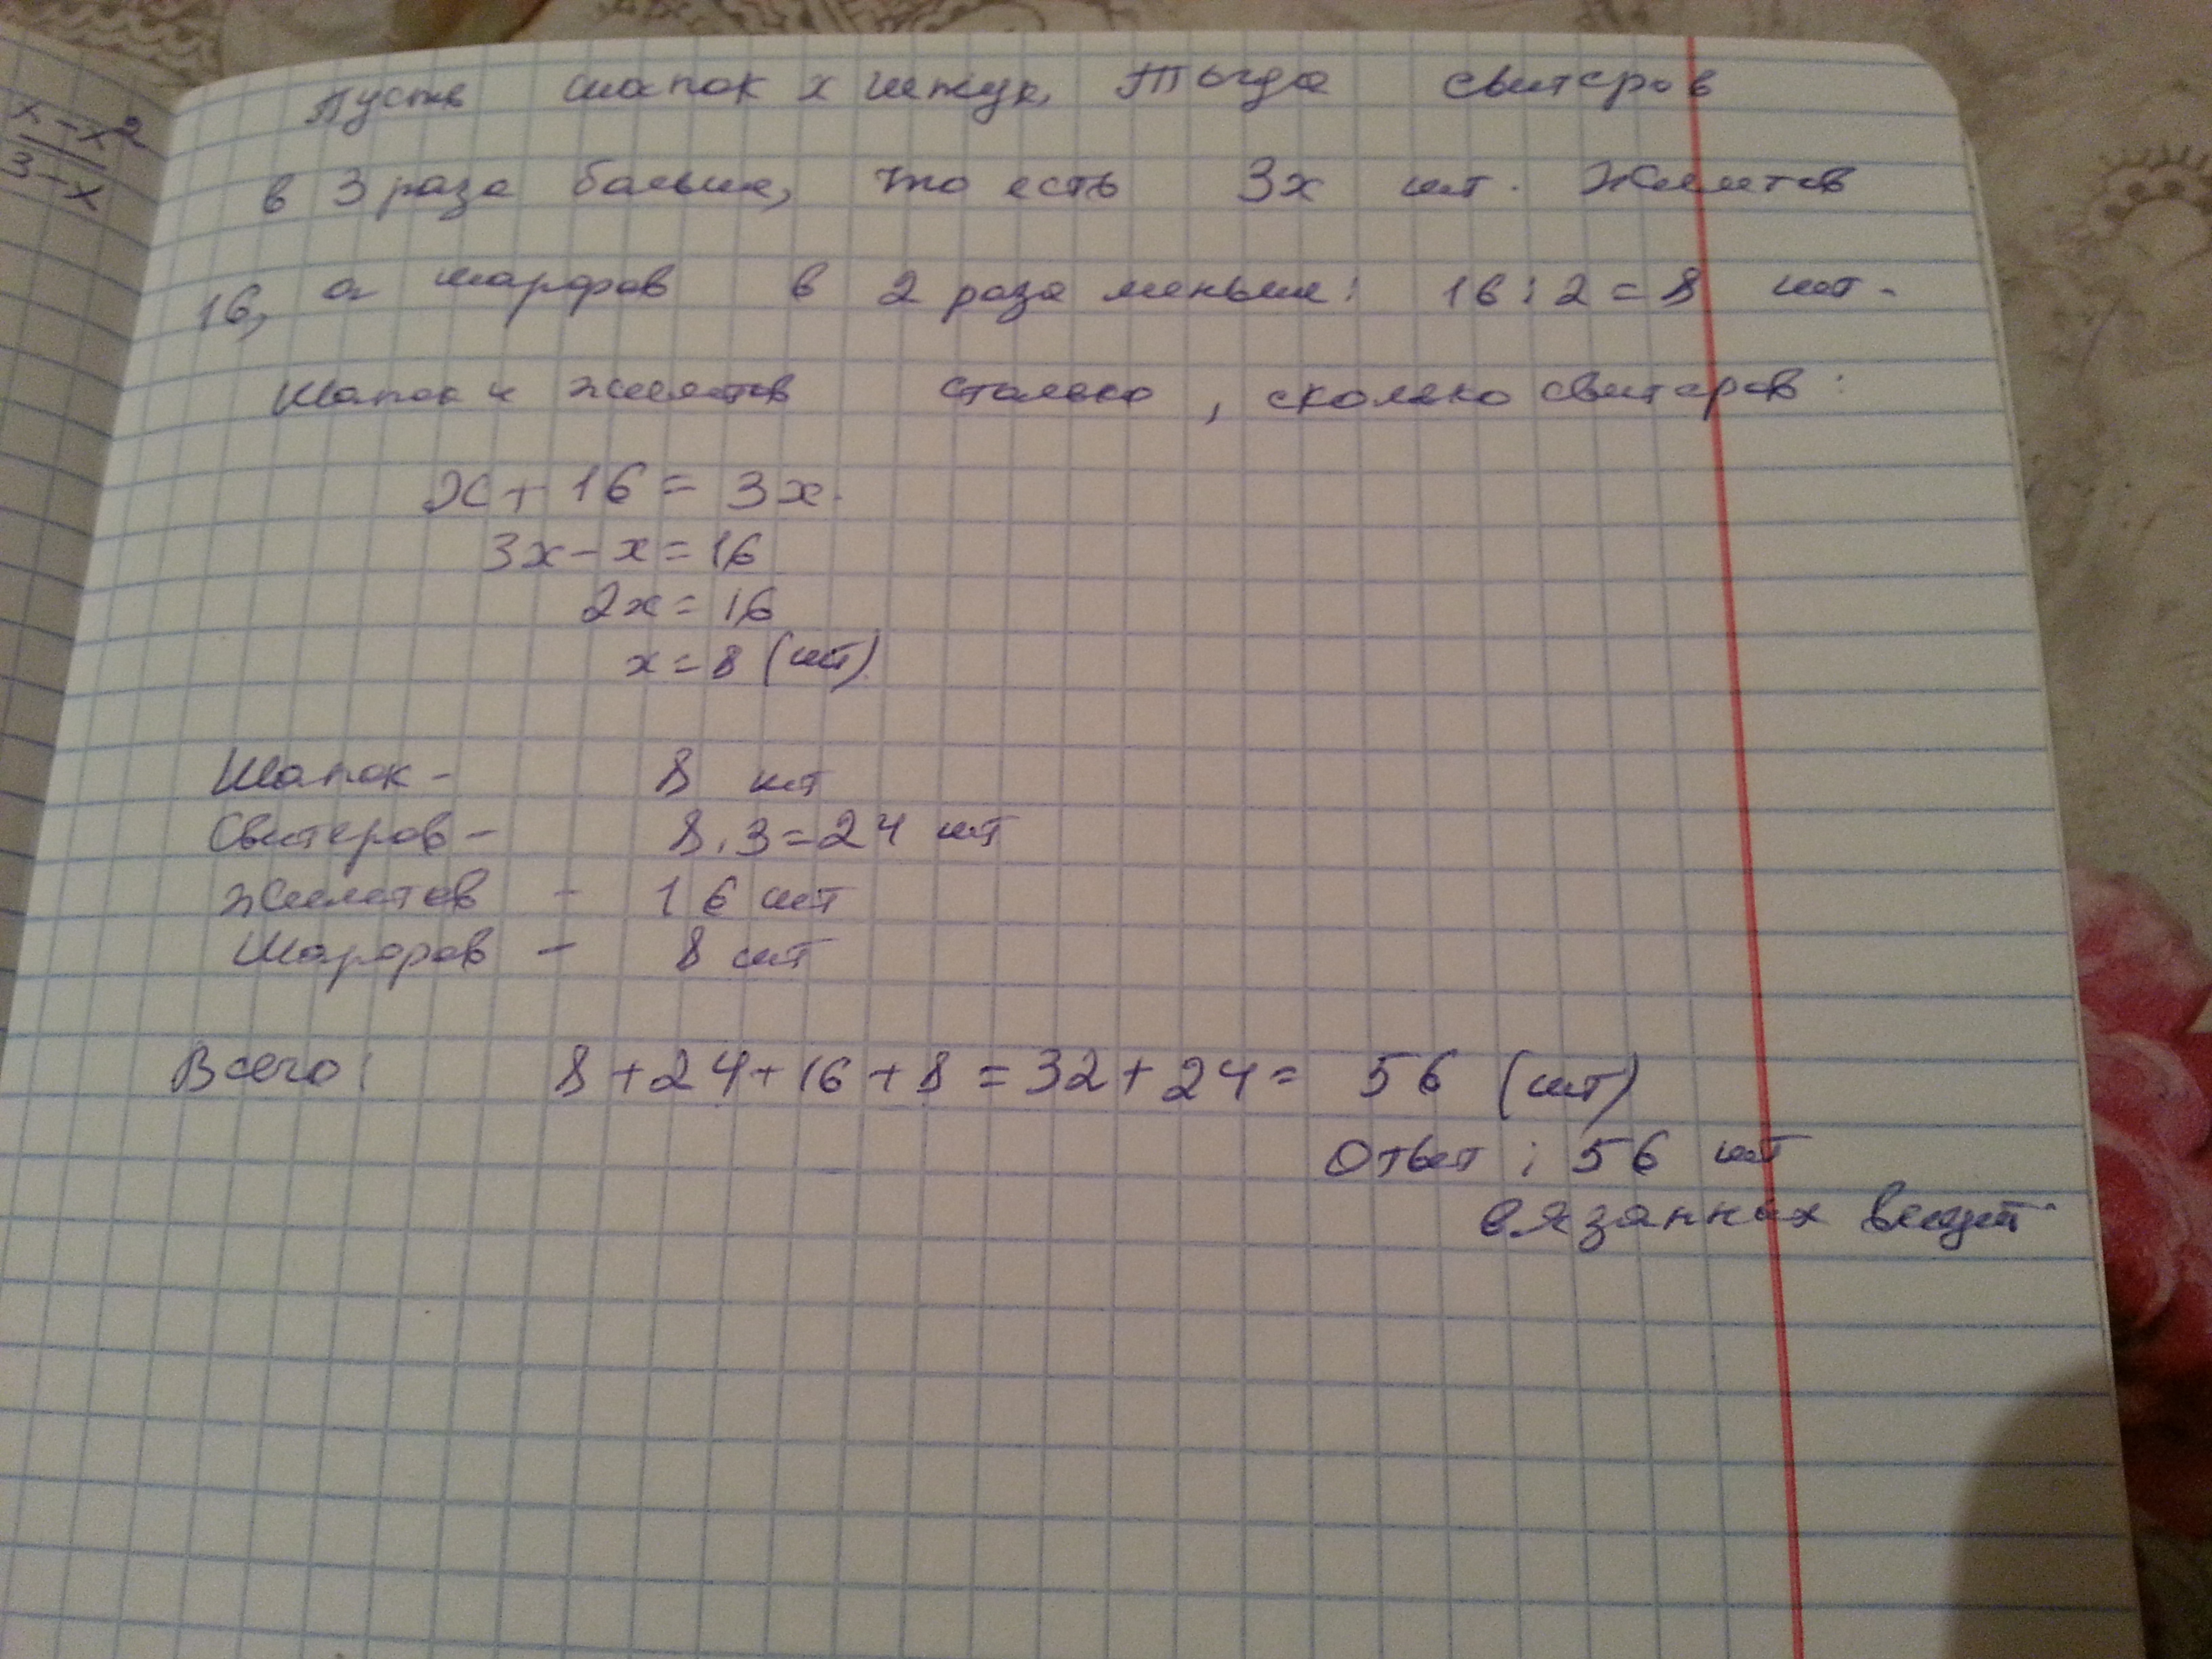 x-x²
3-x
Пусть шапок x штук. Тогда свитеров
в 3 раза больше, то есть 3x шт. Жилетов
16, а шарфов в 2 раза меньше: 16:2=8 шт.
Шапок и жилетов столько, сколько свитеров:
x+16=3x.
3x-x=16
2x=16
x=8 (шт)
Шапок - 8 шт
Свитеров - 8.3=24 шт
Жилетов - 16 шт
Шарфов - 8 шт
Всего: 8+24+16+8=32+24= 56 (шт)
Ответ: 56 шт
вязанных вещей